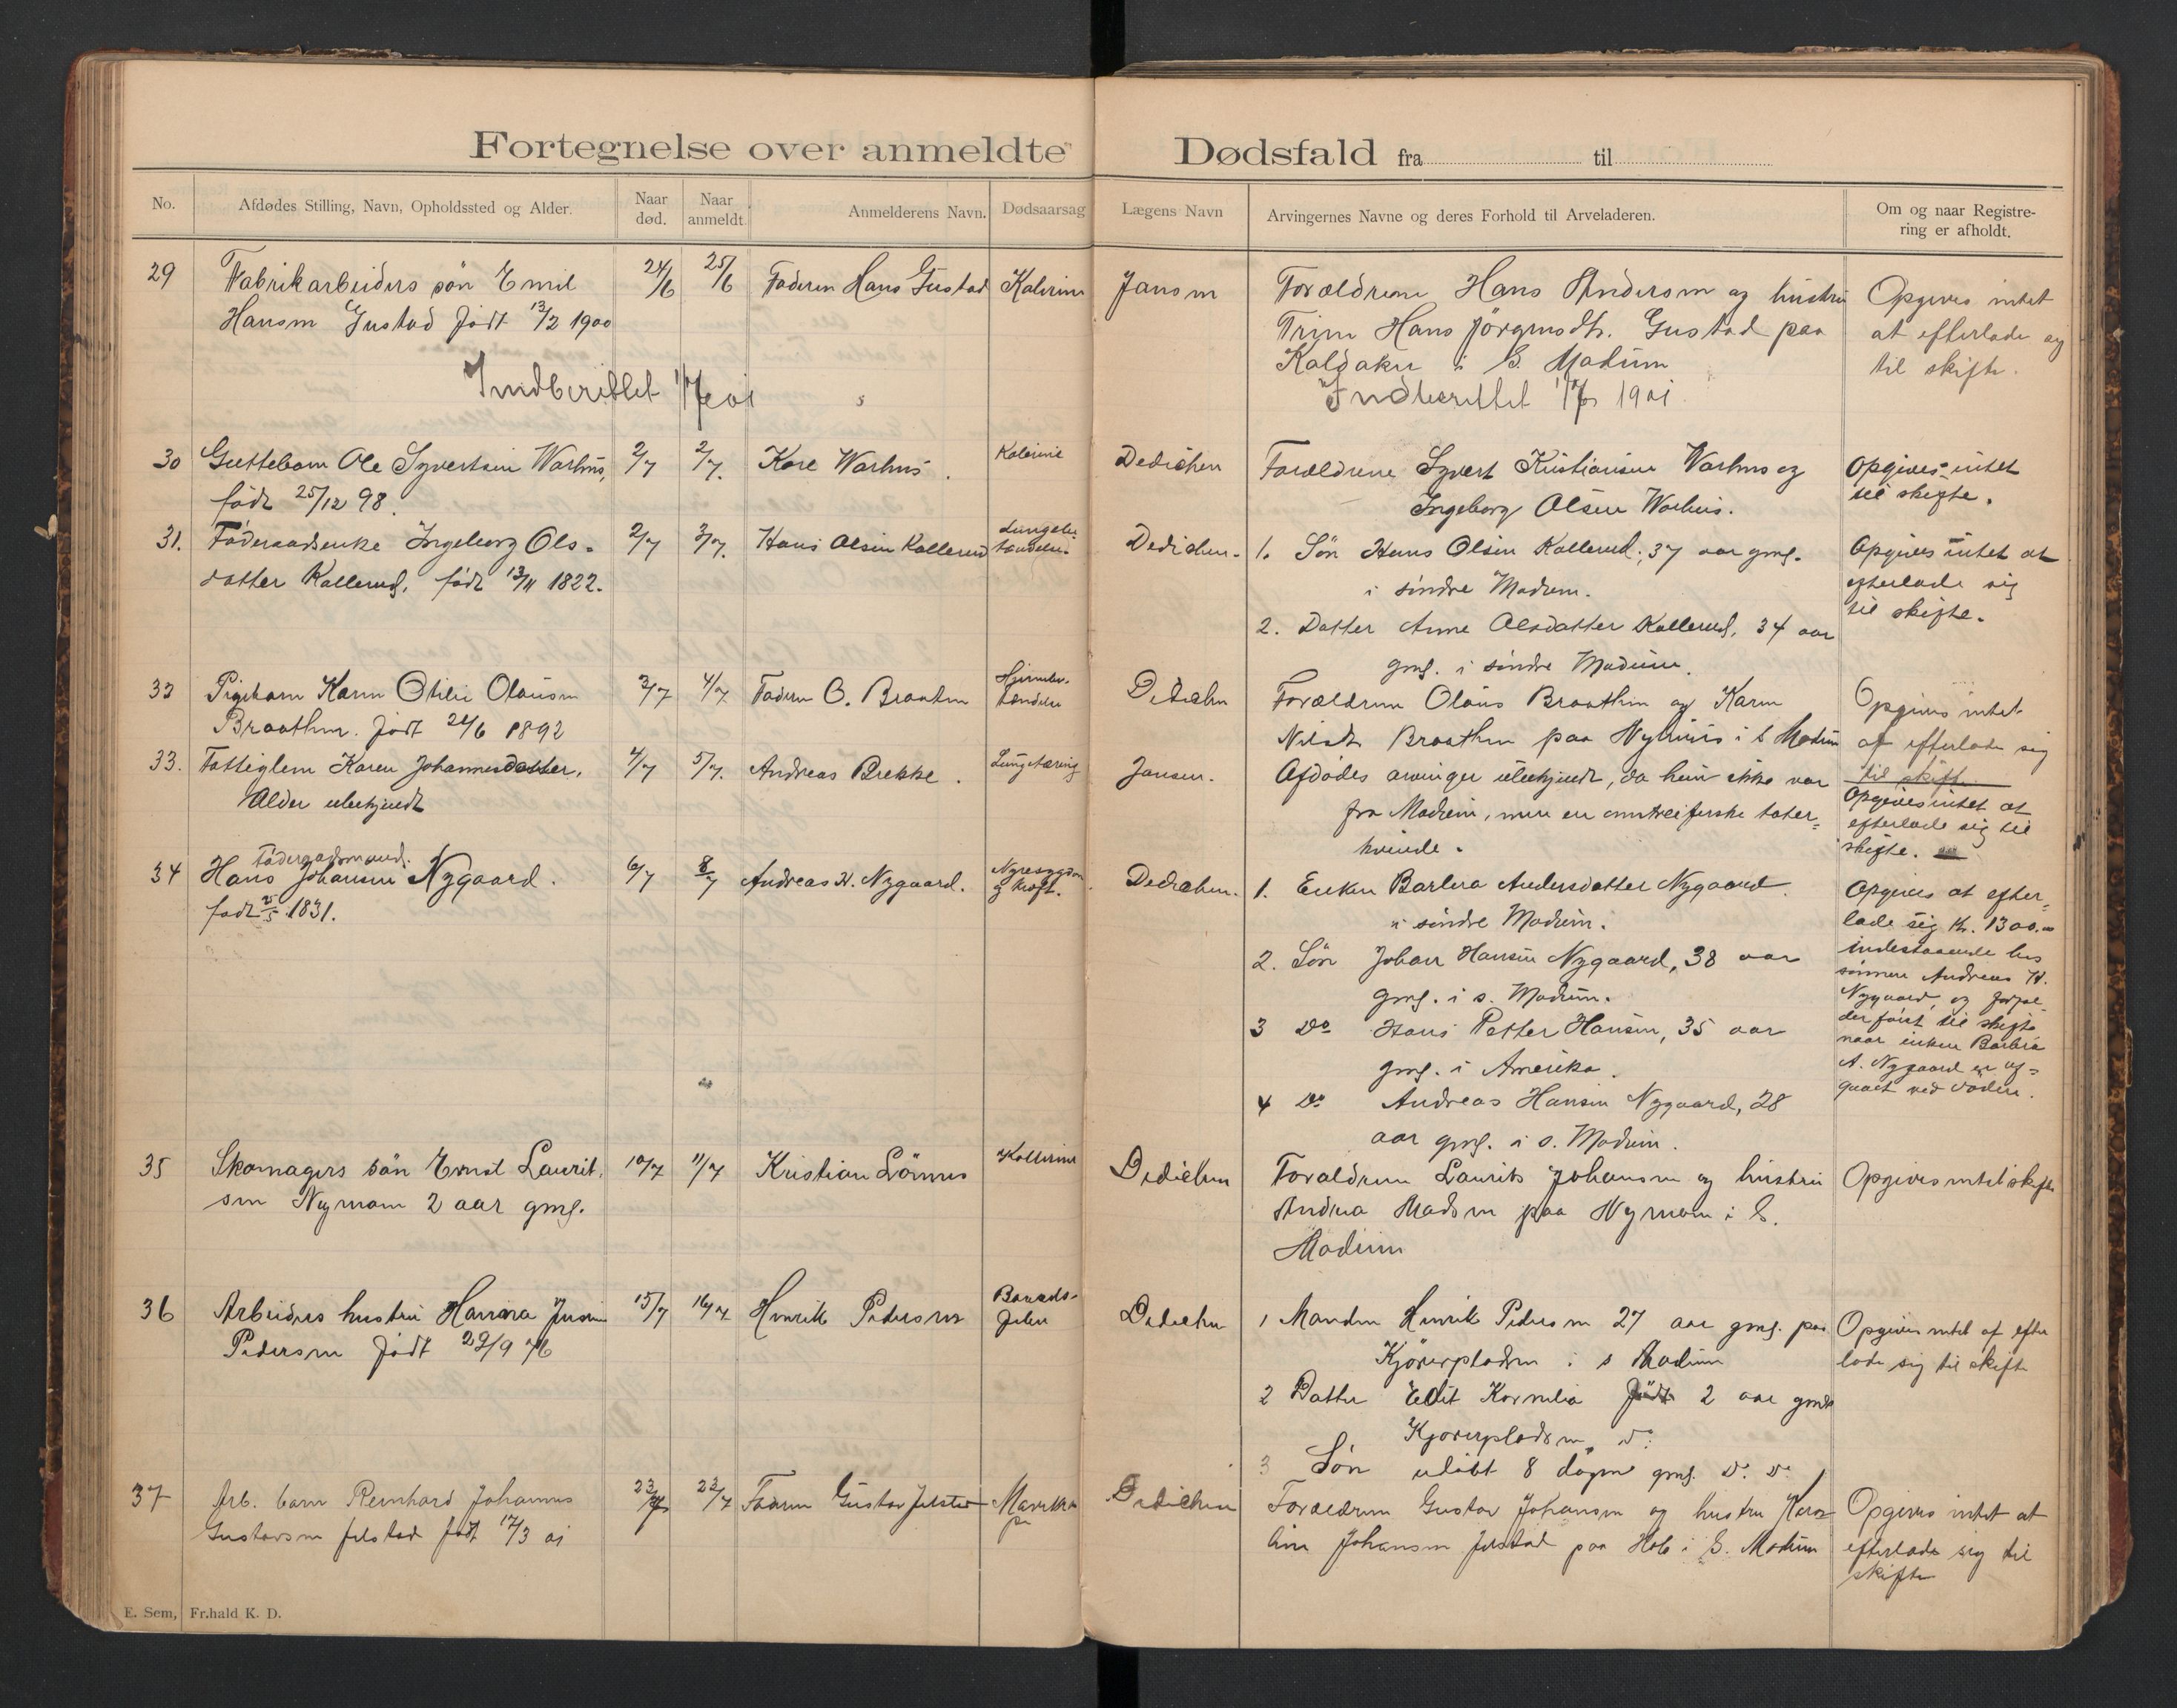 Fortegnelse over anmeldte Dødsfald fra til
No.
Afdødes Stilling, Navn, Opholdssted og Alder.
Naar død.
Naar anmeldt.
Anmelderens Navn.
Dødsaarsag
Lægens Navn
Arvingernes Navne og deres Forhold til Arveladeren.
Om og naar Registre-
ring er afholdt.
29 Fabrikarbeiders søn Emil 24/6 25/6 Faderen Hans Gustad Kolerine Jansen Forældrene Hans Andersen og hustru Opgives intet
Hansen Gustad født 13/2 1900 Trine Hans Jørgensdtr. Gustad paa at efterlade sig
Kaldaker i S. Modum til skifte.
Indberettet 1/7 01 Indberettet 1/7 1901
30 Guttebarn Ole Syvertsen Warhus, 2/7 2/7. Kare Warhus. Kolerine Dedichen Forældrene Syvert Kristiansen Warhus og Opgives intet
født 25/12 98. Ingeborg Olsen Warhus. til skifte.
31. Føderaadsenke Ingeborg Ols- 2/7 3/7. Hans Olsen Kollerud Lungebe- Dedichen. 1. Søn Hans Olsen Kollerud, 37 aar gml. Opgives intet at
datter Kollerud, født 13/11 1822. tændelse i søndre Modum. efterlade sig
2. Datter Anne Olsdatter Kollerud, 34 aar til skifte.
gml. i søndre Modum.
32 Pigebarn Karen Otilie Olausen 3/7 4/7 Faderen O. Braathen Hjernebe- Dedichen Forældrene Olaus Braathen og Karen Opgives intet
Braathen. født 24/6 1892 tændelse Nilsdtr Braathen paa Nyhuus i S Modum at efterlade sig
til skifte
33. Fattiglem Karen Johannesdatter, 4/7 5/7. Andreas Brekke. Lungetæring Jansen. Afdødes arvinger ubekjendt, da hun ikke var Opgives intet at
Alder ubekjendt fra Modum, men en omstreifende tater- efterlade sig til
kvinde. skifte.
34 Føderaadsmand.
Hans Johansen Nygaard. 6/7 8/7 Andreas H. Nygaard. Nyresygdom Dedichen. 1. Enken Barbra Andersdatter Nygaard Opgives at efter-
født 2/5 1831. og kræft. i søndre Modum. lade sig Kr. 1300.00
2. Søn Johan Hansen Nygaard, 38 aar indestaaende hos
gml. i s. Modum. sønnen Andreas H.
3 Do Hans Petter Hansen, 35 aar Nygaard, og
gml. i Amerika. der først til skifte
4 Do Andreas Hansen Nygaard, 28 naar enken Barbra
aar gml. i s. Modum. A. Nygaard er af-
gaaet ved døden.
35 Skomagers søn Ernst Laurit- 10/7 11/7 Kristian Lønnes Kollerine Dedichen Forældrene Laurits Johansen og hustru Opgives intet til skifte
sen Nymoen 2 aar gml. Andrea Madsen paa Nymoen i S.
Modum
36 Arbeiders hustru Hanna 15/7 16/7 Henrik Pedersen Barsels- Dedichen 1 Manden Henrik Pedersen 27 aar gml. paa Opgives intet at efter
Pedersen født 22/9 76 feber Kjørerpladsen i s Modum lade sig til skifte
2 Datter Edit Kornelia født 2 aar gml.
Kjørerpladsen do.
3 Søn udøbt 8 dage gml. do. do.
37 Arb. barn Reinhard Johannes 22/7 22/7 Faderen Gustav Jelstad Dedichen Forældrene Gustav Johansen og hustru Karo- Opgives intet at
Gustavsen Jelstad født 17/3 01 line Johansen Jelstad paa Hole i S. Modum efterlade sig til
skifte
E. Sem, Fr.hald K. D.